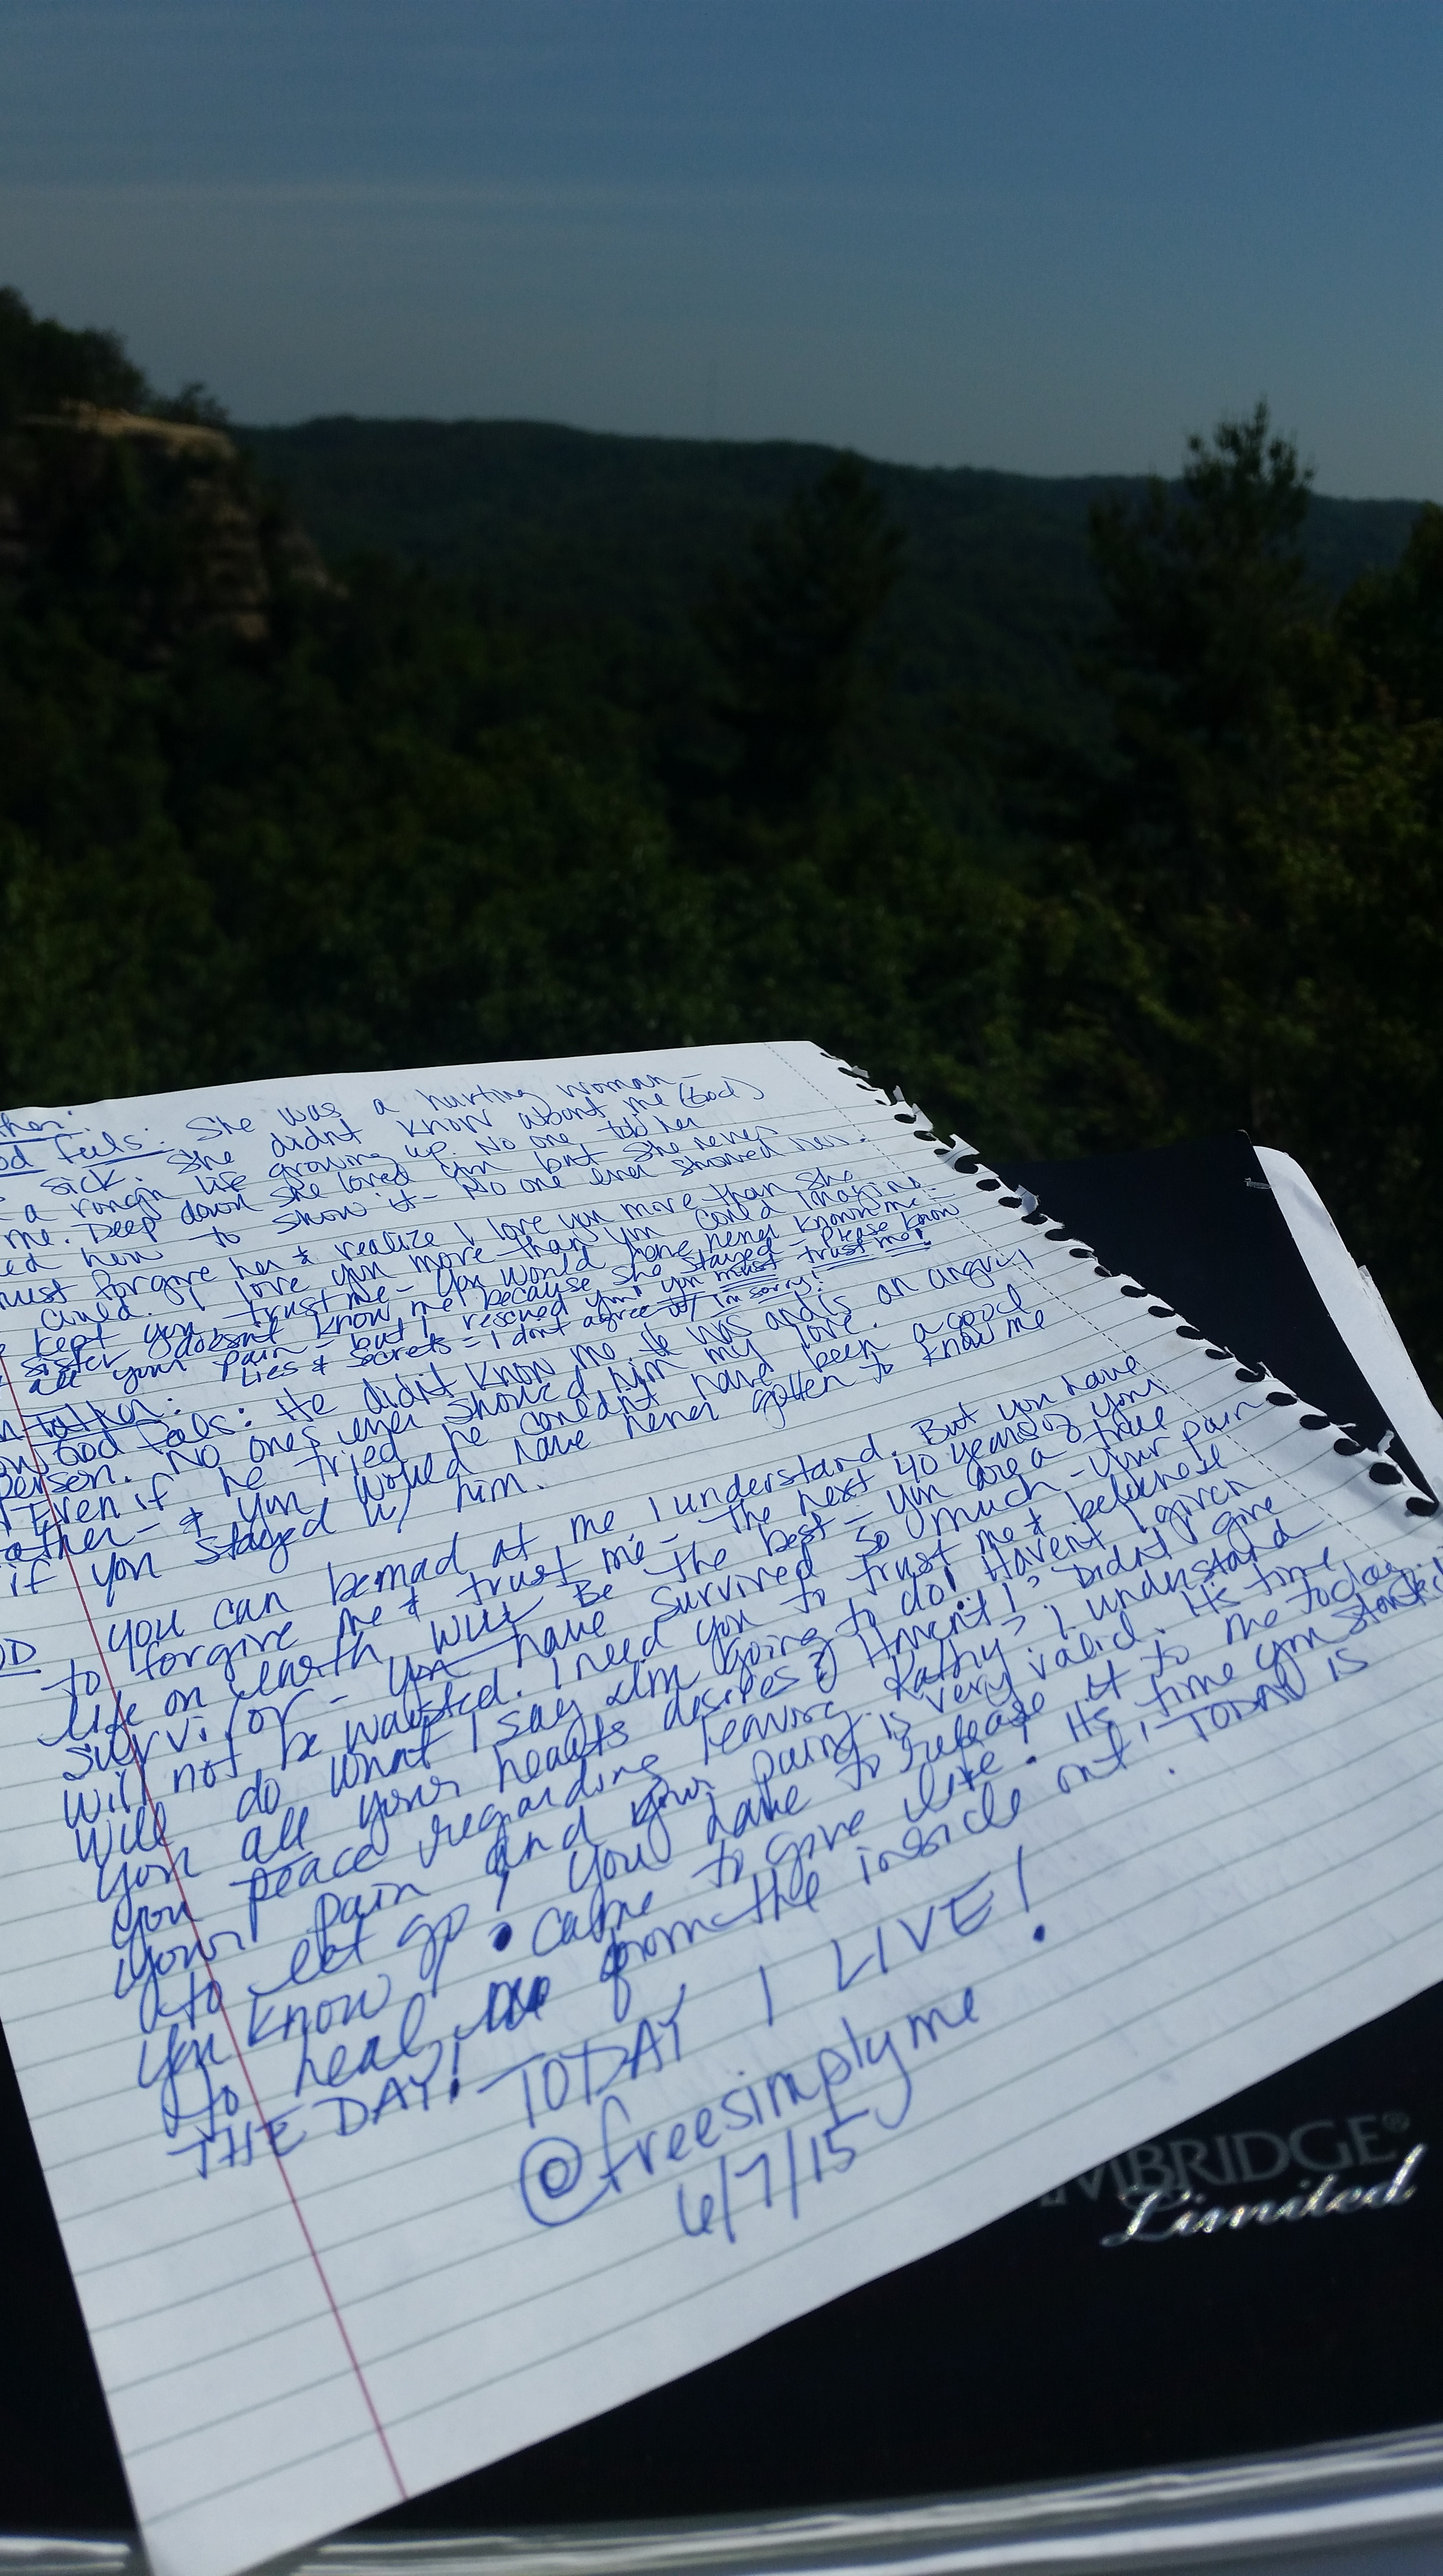 ther:
od feels: She was a hurting woman-
sick. She didnt know about me (God)
a rough life growing up. No one told her
me. Deep down she loved you but she never
ed how to show it - No one ever showed her.
must forgive her & realize I love you more than she
could. I love you more than you could imagine-
kept you trust me - you would have never known me -
sister doesnt know me because she stayed - Please know
all your pain - but I rescued you! you must trust me!
Lies & secrets = I dont agree w/ im sorry!
n father:
ow God feels: He didn't know me He was and is an angry
person. No ones ever showed him my love.
Even if he tried he couldnt have been a good
ather - & you would have never gotten to know me
if you stayed w/ him.
OD you can be mad at me I understand. But you have
to forgive me & trust me - the next 40 years of your
life on earth WILL Be the best - you are a true
survivor - you have survived so much - your pain
will not be wasted. I need you to trust me &
will do what I say Im going to do! Havent I given
you all your hearts desires? Havent I? Didnt I give
you peace regarding leaving Kathy? I understand
your pain and your pain is very valid. Its time
to let go! you have to release it to me today
you know I came to give life. Its time you started
to heal from the inside out! TODAY IS
THE DAY! TODAY I LIVE!
@freesimplyme
6/7/15
MBRIDGE®
Limited